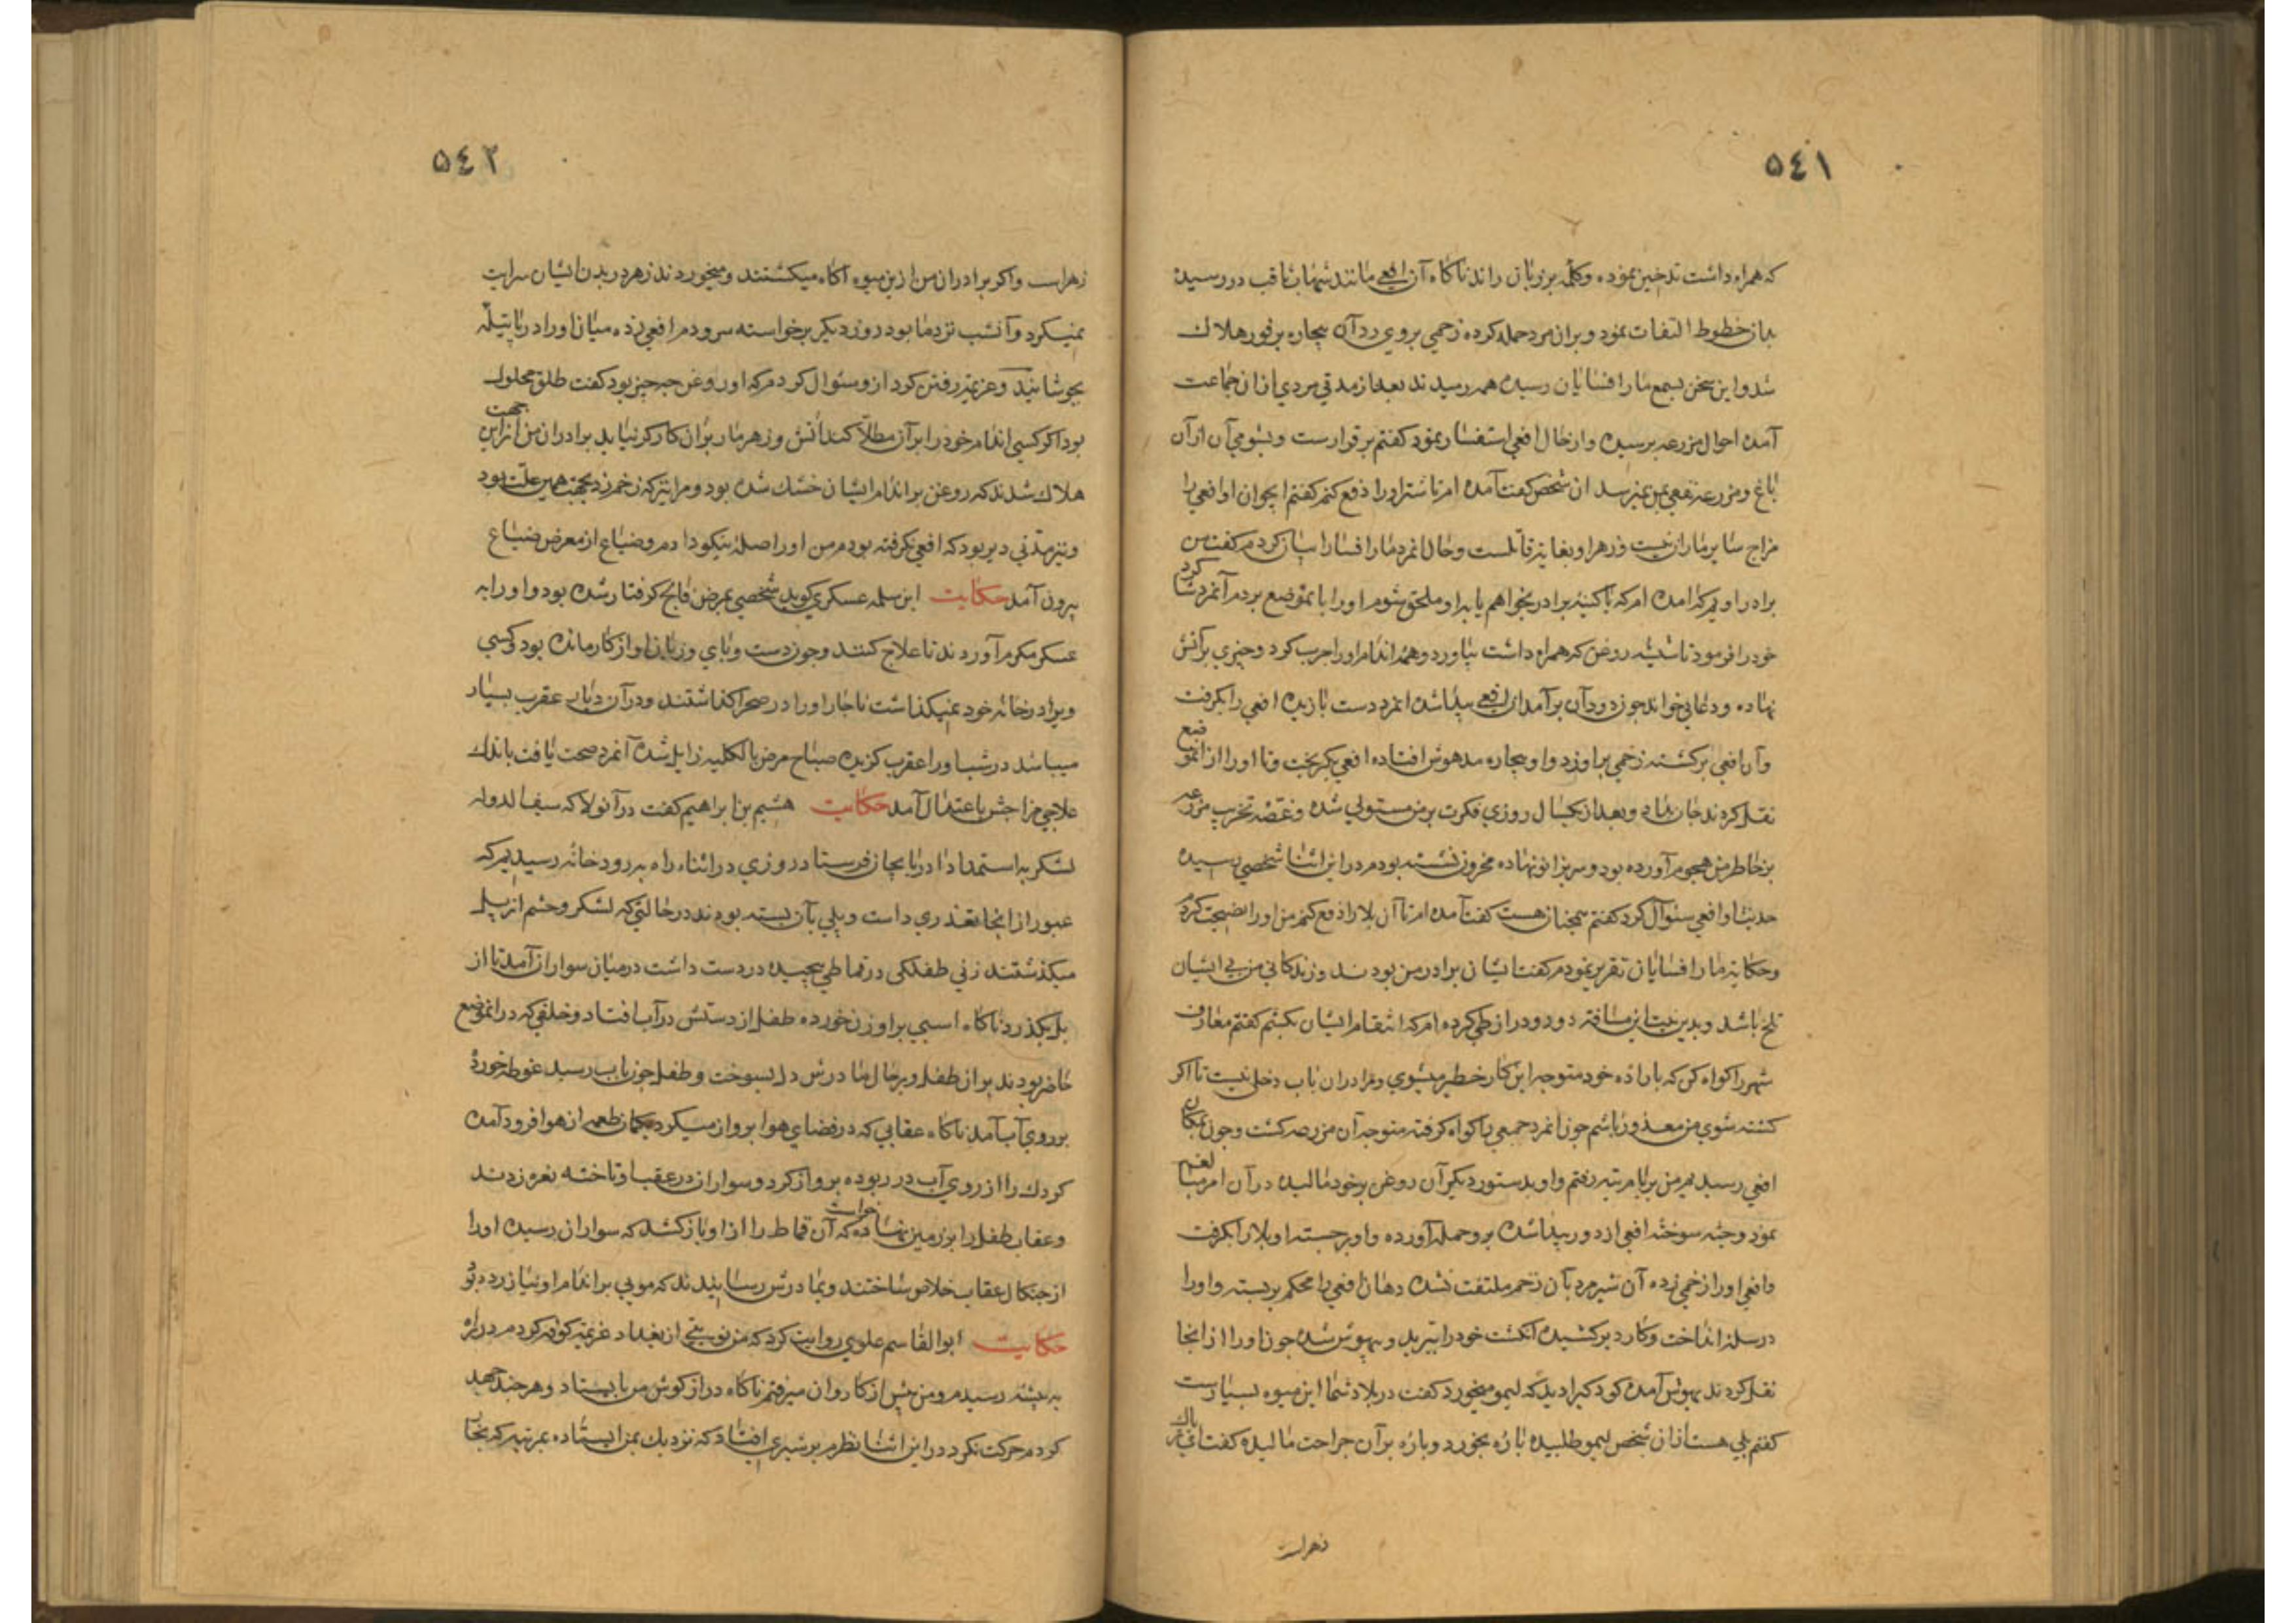 ٥٤١
که همراه داشت تدخین نموده وکلمه بر زبان راند ناکاه آن افعی مانند شهاب ثاقب در رسیده
بدان خطوط التفات ننمود و بران مرد حمله کرده زخمی بر وی زد آن بیچاره بر فور هلاک
شد و این سخن بسمع مار افسایان رسیده همه رمیدند بعد از مدتی مردی از ان جماعت
آمده احوال مزرعه پرسیده و از حال افعی استفسار نمود کفتم بر قرارست و بشومی آن از آن
باغ و مزرعه نفعی بمن نمیرسد ان شخص کفت آمده ام تا شر او را دفع کنم کفتم ایجوان او افعی را
مزاج سایر ماران نیست و زهر او بغایت قاتلست و حال انمرد مار افسا را بیان کردم کفت من
برادر اویم که امده ام که یا کینه برادر بخواهم یا بدو ملحق شوم او را بانموضع بردم آنمرد شاکرد
خود را فرمود تا شیشه روغن که همراه داشت بیاورد و همه اندام او را چرب کرد و چیزی بر آتش
نهاده و دعائی خواند چون دود آن برآمد ان افعی پیدا شده انمرد دست یازیده افعی را بکرفت
و آن افعی برکشته زخمی بر او زد و او بیچاره مدهوش افتاده افعی بکریخت و تا او را از انموضع
نقل کردند جان بداد و بعد از یکسال روزی فکرت بر من مستولی شده و غصه تخریب مزرعه
بر خاطر من هجوم آورده بود و سر بزانو نهاده محزون نشسته بودم در این اثنا شخصی رسیده
حدیث او افعی سئوال کرد کفتم همچنان هست کفت آمده ام تا آن بلا را دفع کنم من او را نصیحت کردم
و حکایت مار افسایان تقریر نمودم کفت ایشان برادر من بودند و زندکانی من بی ایشان
تلخ باشد و بدین نیت این مسافت دور و دراز طی کرده ام که انتقام ایشان بکشم کفتم معارف
شهر را کواه کن که باراده خود متوجه این کار خطیر میشوی و مرا در ان باب دخلی نیست تا اکر
کشته شوی من معذور باشم چون انمرد جمعی را کواه کرفته متوجه آن مزرعه کشت و چون بمکان
افعی رسیدیم من بر بام رفتم و او بدستور دیکر آن روغن بر خود مالیده در آن امر مبالغه
نمود و سوخته افعی از دور پیدا شده برو حمله آورده و او بر جسته او بلا را بکرفت
و افعی او را زخمی زده آن شیر مرد بآن زخم ملتفت نشده دهان افعی را محکم بر بسته و او را
در سله انداخت و کارد بر کشیده انکشت خود را ببرید و بیهوش شده چون او را از انجا
نقل کردند بهوش آمده کودکی را دید که لیمو میخورد کفت در بلاد شما این میوه بسیارست
کفتم بلی هست از ان شخص لیمو طلبیده پاره بخورد و پاره بر آن جراحت مالیده کفت این تریاک
زهراست
٥٤٢
زهراست و اکر برادران من از ین میوه آکاه میکشتند و میخوردند زهر در بدن ایشان سرایت
نمیکرد و آنشب نزد ما بود روز دیکر برخواسته سر و دم افعی زده میان او را در پاتیله
بجوشانید و عزیمت رفتن کرد از و سئوال کردم که او روغن چه چیز بود کفت طلق محلول
بود اکر کسی اندام خود را بر آن مطلا کند آتش و زهر مار بر ان کارکر نیاید برادران من از این جهت
هلاک شدند که روغن بر اندام ایشان خشک شده بود و مرا نیز که زخم زد بجهت همین علت بود
و نیز مدتی دیر بود که افعی نکرفته بودم من او را صله نیکو دادم و ضیاع از معرض ضیاع
بیرون آمد حکایت ابن سلمه عسکری کوید شخصی بمرض فالج کرفتار شده بود و او را به
عسکر مکرم آوردند تا علاج کنند و چون دست و پای و زبان او از کار مانده بود و کسی
ویرا در خانه خود نمیکذاشت ناچار او را در صحرا کذاشتند و در آن دیار عقرب بسیار
میباشد در شب او را عقرب کزیده صباح مرض بالکلیه زایل شده آنمرد صحت یافت باندک
علاجی مزاجش باعتدال آمد حکایت هشیم بن ابراهیم کفت در آنولا که سیف الدوله
لشکر به استمداد اذربایجان فرستاد روزی در اثناء راه به رودخانه رسیدیم که
عبور از انجا تعذری داشت و پلی بآن بسته بودند در حالتی که لشکر و حشم از پل
میکذشتند زنی طفلکی در قماطی پیچیده در دست داشت در میان سواران آمد تا از
پل بکذرد ناکاه اسبی بر او زن خورده طفل از دستش در آب افتاد و خلقی که در انموضع
حاضر بودند بر ان طفل و بر حال مادرش دل بسوخت و طفل چون بآب رسید غوطه خورد
بر روی آب آمد ناکاه عقابی که در فضای هوا پرواز میکرد بکمان طعمه از هوا فرود آمده
کودک را از روی آب در ربوده پرواز کرد و سواران در عقب او تاخته نعره زدند
و عقاب طفل را بر زمین نهاده خواست که آن قماط را از او باز کشد که سواران رسیده او را
از چنکال عقاب خلاص ساختند و بمادرش رسانیدند که موئی بر اندام او نیازرده بود
حکایت ابو القاسم علوی روایت کرد که من نوبتی از بغداد عزیمت کوفه کردم در راه
به بیشه رسیدم و من پیش از کاروان میرفتم ناکاه دراز کوش من بایستاد و هر چند جهد
کردم حرکت نکرد در این اثنا نظرم بر شیری افتاد که نزدیک بمن ایستاده بمرتبه که بخار